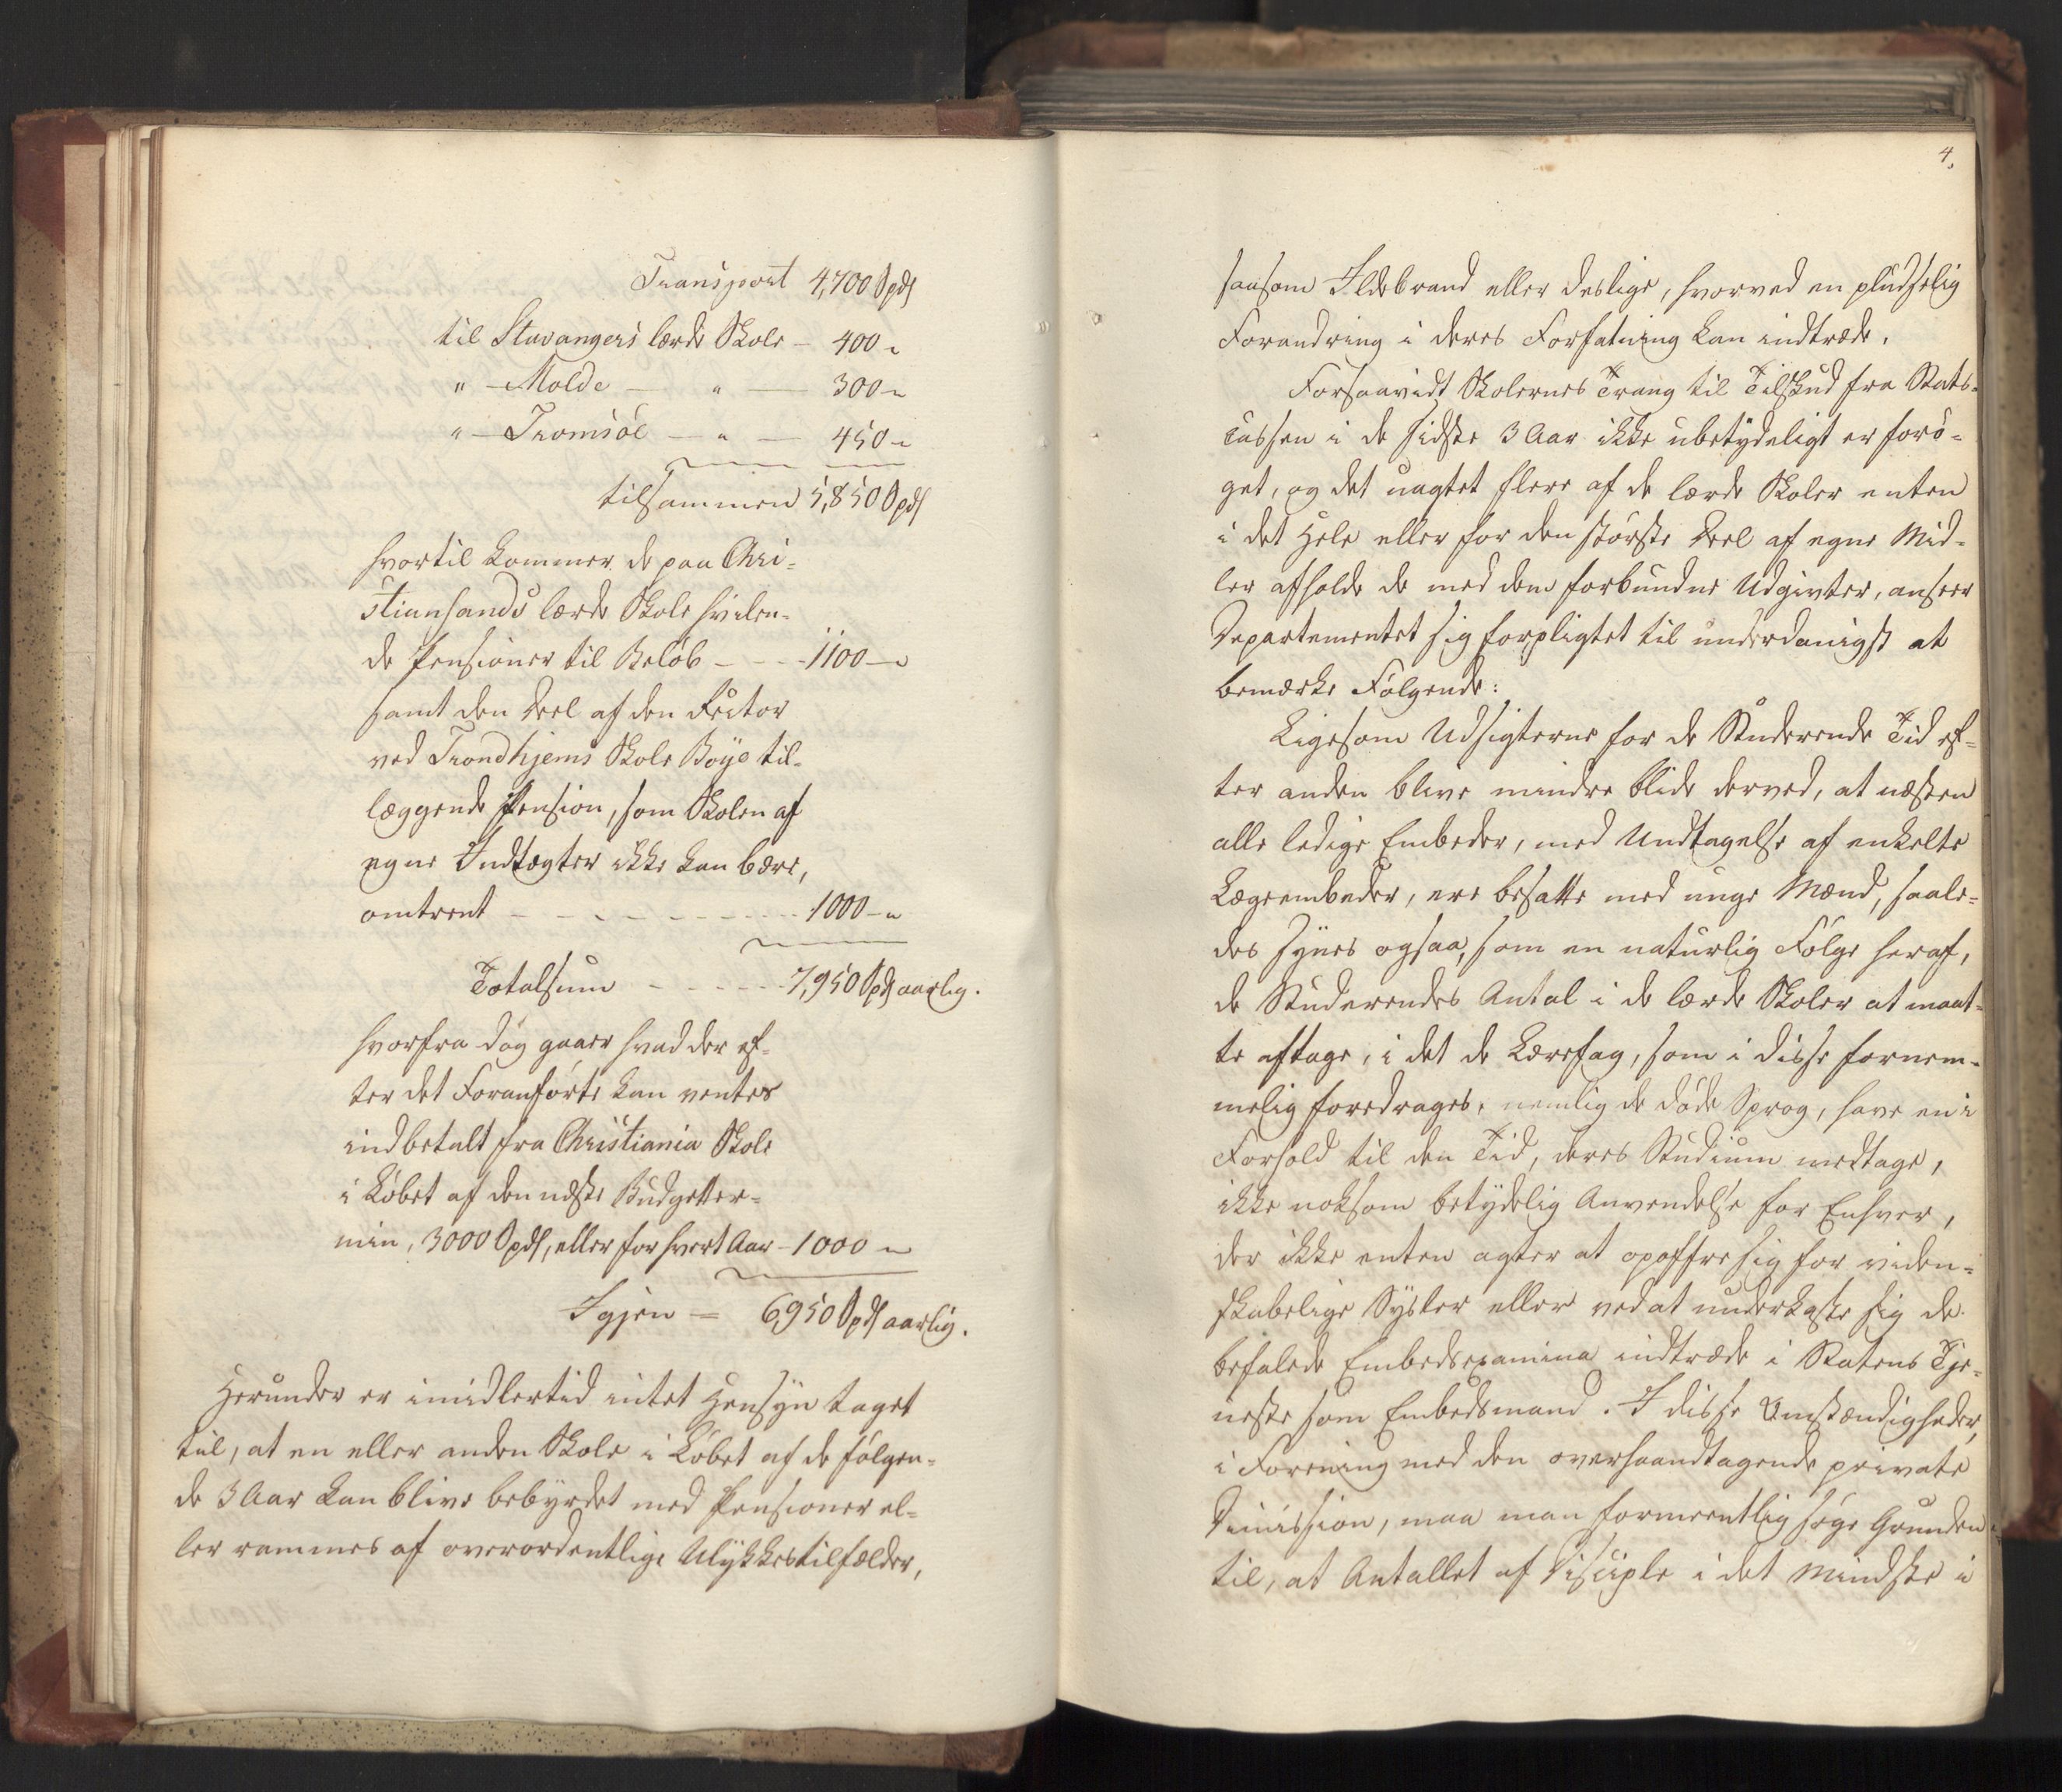 Transport 4,700 Spd
til Stavangers lærde Skole – 400 "
" – Molde – " – 300 "
" – Tromsöe – " – 450 "
tilsammen 5,850 Spd
hvortil kommer de paa Chri-
stiansands lærde Skole hvilen-
de Pensioner til Beløb – – – 1100 – "
samt den Deel af den Rector
ved Trondhjems Skole Böye til-
læggende Pension, som Skolen af
egne Indtægter ikke kan bære,
omtrent – – – – – – – 1000 – "
Totalsum – – – – – 7,950 Spd aarlig.
hvorfra dog gaaer hvad der ef-
ter det Foranførte kan ventes
indbetalt fra Christiania Skole
i Løbet af den næste Budgetter-
min, 3000 Spd, eller for hvert Aar – 1000 "
Igjen = 6,950 Spd aarlig.
Herunder er imidlertid intet Hensyn taget
til, at en eller anden Skole i Løbet af de følgen-
de 3 Aar kan blive bebyrdet med Pensioner el-
ler rammes af overordentlige Ulykkestilfælder,
4.
saasom Ildebrand eller deslige, hvorved en pludselig
Forandring i deres Forfatning kan indtræde.
Forsaavidt Skolernes Trang til Tilskud fra Stats-
cassen i de sidste 3 Aar ikke ubetydeligt er forö-
get, og det uagtet flere af de lærde Skoler enten
i det Hele eller for den störste Deel af egne Mid-
ler afholde de med dem forbundne Udgivter, anseer
Departementet sig forpligtet til underdanigst at
bemærke Følgende:
Ligesom Udsigterne for de Studerende Tid ef-
ter anden blive mindre blide derved, at næsten
alle ledige Embeder, med Undtagelse af enkelte
Lægeembeder, ere besatte med unge Mænd, saale-
des synes ogsaa, som en naturlig Følge heraf,
de Studerendes Antal i de lærde Skoler at maat-
te aftage, i det de Lærefag, som i disse fornem-
melig foredrages, nemlig de døde Sprog, have en i
Forhold til den Tid, deres Studium medtage,
ikke noksom betydelig Anvendelse for Enhver,
der ikke enten agter at opoffre sig for viden-
skabelige Sysler eller ved at underkaste sig de
befalede Embedsexamina indtræde i Statens Tje-
neste som Embedsmand. I disse Omstændigheder,
i Forening med den overhaandtagende private
Dimission, maa man formeentlig søge Grunden
til, at Antallet af Disciple i det mindste i